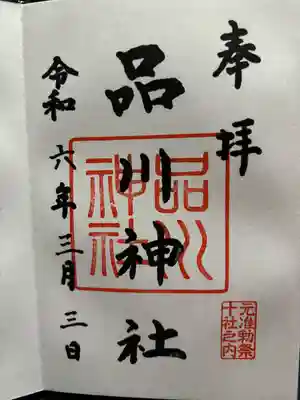 奉拝
元准勅祭
十社之内
品川神社
品川
神社
令和六年三月三日